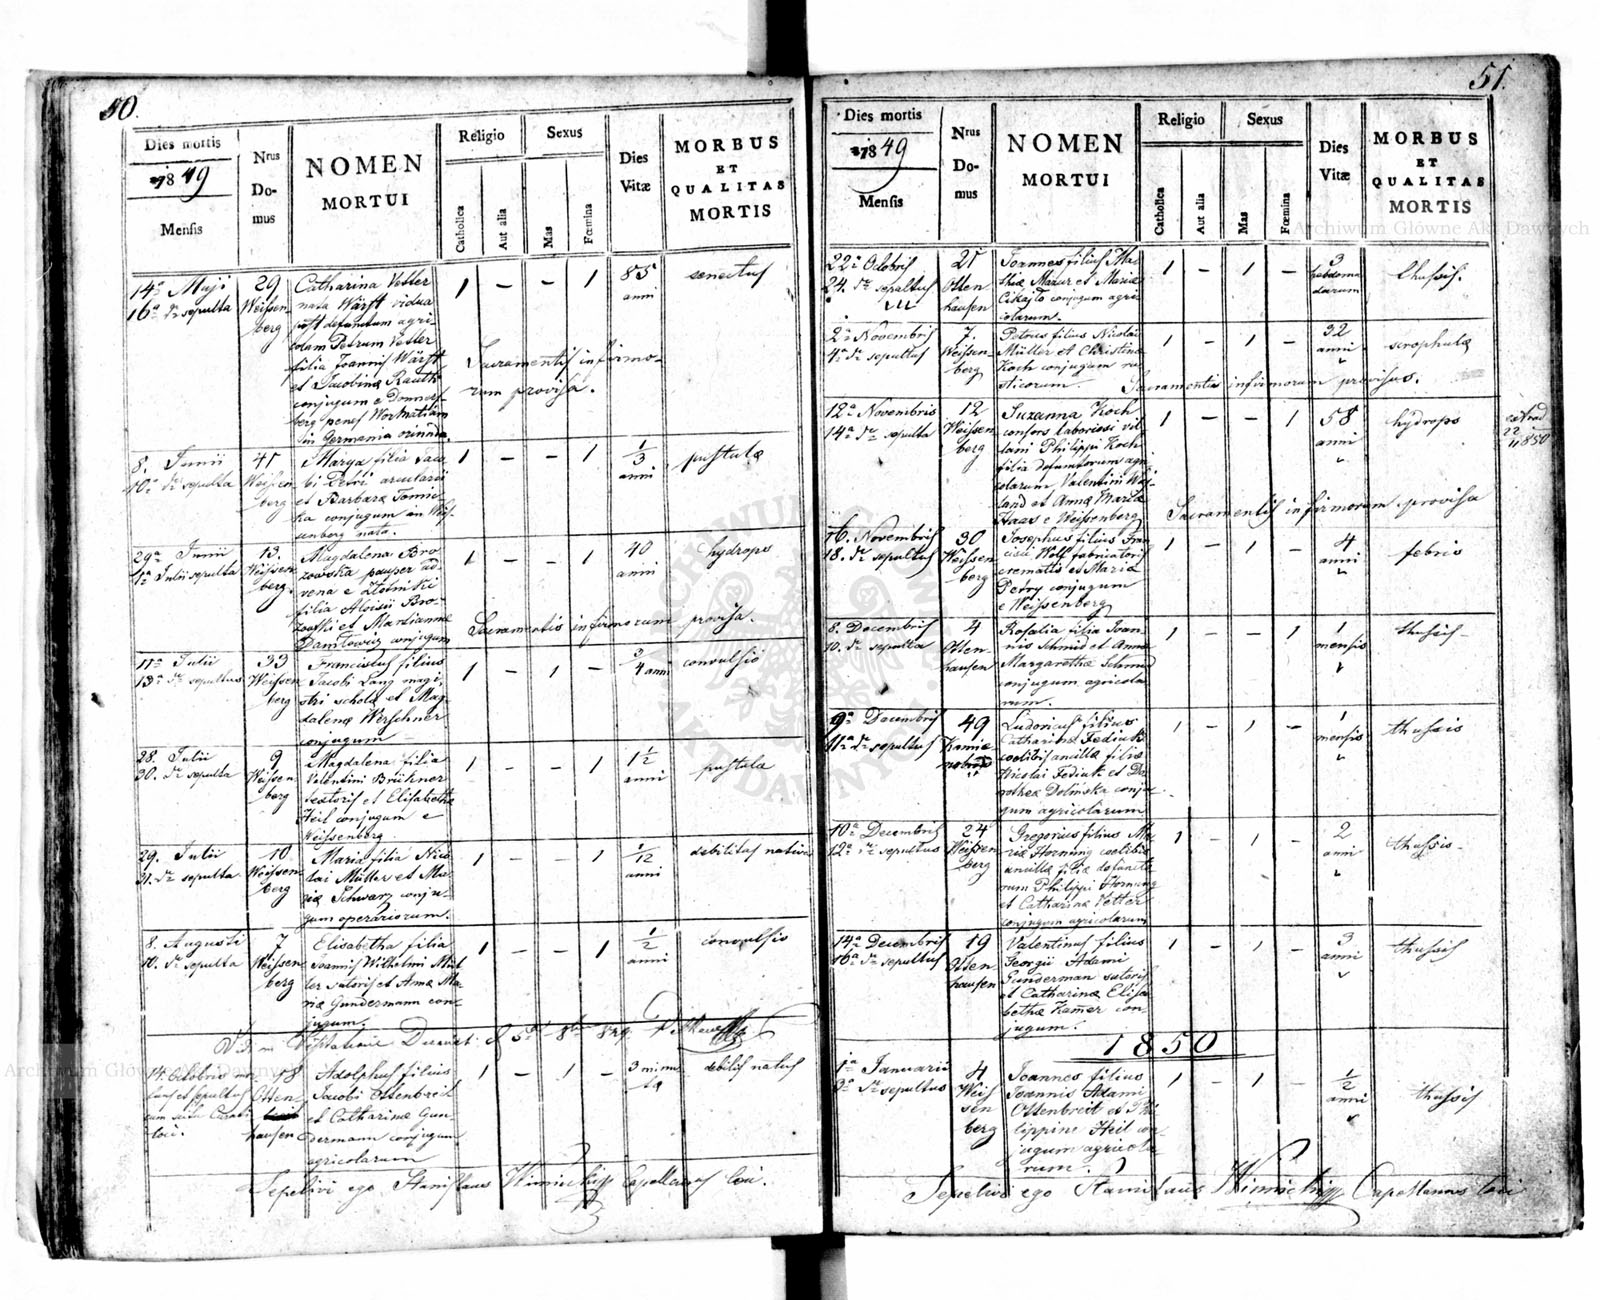 50.
Dies mortis
1849
Mensis
Nrus
Do-
mus
NOMEN
MORTUI
Religio
Catholica
Aut alia
Sexus
Mas
Fœmina
Dies
Vitæ
MORBUS
ET
QUALITAS
MORTIS
14a Maji
16a dto sepulta
29
Weissen-
berg
Catharina Vetter
nata Wärft vidua
post defunctum agri-
colam Petrum Vetter
filia Joannis Wärft
et Jacobinæ Rauth
conjugum e Donners-
berg penes Wormatiam
in Germania oriunda.
1 – – 1
85
anni
senectus
Sacramentis infirmo-
rum provisa.
8. Junii
10a dto sepulta
41
Weissen-
berg
Marya filia Jaco-
bi Petri arcularii
et Barbaræ
conjugum in Weis-
senberg nata.
1 – – 1
1/3
anni
pustulæ
29a Junii
1a Julii sepulta
13.
Weissen-
berg.
Magdalena Bro-
zowska pauper ad-
vena e
filia Aloisii Bro-
zowski et Marianna
Daniłowicz conjugum
1 – – 1
40
anni
hydrops
Sacramentis infirmorum provisa.
11a Julii
13a dto sepultus
33
Weissen-
berg
Franciscus filius
Jacobi Lang magi-
stri scholæ et Mag-
dalenæ Werschner
conjugum
1 – 1 –
4 anni
convulsio
28. Julii
30. dto sepulta
9
Weissen-
berg
Magdalena filia
Valentini Brükner
textoris et Elisabethæ
Heil conjugum e
Weissenberg
1 – – 1
1½
anni
pustulæ
29. Julii
31. dto sepulta
10
Weissen-
berg
Maria filia Nico-
lai Müller et Ma-
riæ Schwarz conju-
gum operariorum.
1 – – 1
1/12
anni
debilitas nativa
8. Augusti
10. dto sepulta
7
Weissen-
berg
Elisabetha filia
Joannis Wilhelmi Mül-
ler sutoris et Annæ Ma-
riæ Gundermann con-
jugum.
1 – – 1
1/2
anni
convulsio
14. Octobris
18
Otten-
hausen
Adolphus filius
Jacobi Ottenbreit
et Catharinæ Gun-
dermann conjugum
agricolarum
1 – 1 –
3 minu-
ta
debilis natus
Sepelivi ego Stanislaus Winnicki Capellanus loci.
51.
Dies mortis
1849
Mensis
Nrus
Do-
mus
NOMEN
MORTUI
Religio
Catholica
Aut alia
Sexus
Mas
Fœmina
Dies
Vitæ
MORBUS
ET
QUALITAS
MORTIS
22a Octobris
24. dto sepultus
21
Otten
hausen
Joannes filius Ma-
thiæ Mazur et Mariæ
conjugum agri-
colarum.
1 – 1 –
3
hebdoma
darum
thussis.
2a Novembris
4a dto sepultus
7.
Weissen-
berg
Petrus filius Nicolai
Müller et Christinæ
Koch conjugum ru-
sticorum.
1 – 1 –
32
anni
scrophulæ
Sacramentis infirmorum provisus.
12a Novembris
14a dto sepulta
12
Weissen-
berg
Suzanna Koch
consors laboriosi vil-
lani Philippi Koch
filia defunctorum agri-
colarum Valentini Wei-
land et Annæ Mariæ
Haas e Weissenberg
1 – – 1
58
anni
hydrops
extrad
22/11 850
Sacramentis infirmorum provisa
16. Novembris
18. dto sepultus
30
Weissen-
berg
Josephus filius Fran-
cisci Wolf fabricatoris
cremati et Mariæ
Petry conjugum
e Weissenberg
1 – 1 –
4
anni
febris
8. Decembris
10. dto sepulta
4
Otten
hausen
Rosalia filia Joan-
nis Schmid et Annæ
Margarethæ Schmid
conjugum agricola-
rum.
1 – – 1
1
mensis
thussis
9a Decembris
11a dto sepultus
49
Kamie
nobrod
Ludovicus filius
Catharinæ Fediuk
coelibis ancillæ filiæ
Nicolai Fediuk et Do-
rotheæ Dolinska conju-
gum agricolarum
1 – 1 –
1
mensis
thussis
10a Decembris
12a dto sepultus
24
Weissen-
berg
Gregorius filius Ma-
riæ Hornung coelibis
ancillæ filiæ defuncto-
rum Philippi Hornung
et Catharinæ Vetter
conjugum agricolarum
1 – 1 –
2
anni
thussis
14a Decembris
16a dto sepultus
19
Otten
hausen
Valentinus filius
Georgii Adami
Gunderman sutoris
et Catharinæ Elisa
bethæ Kamer con-
jugum.
1 – 1 –
3
anni
thussis
1850
1a Januarii
3a dto sepultus
4
Weis
sen
berg
Joannes filius
Joannis Adami
Ottenbreit et Phi-
lippinæ Heil con-
jugum agricola-
rum.
1 – 1 –
1/2
anni
thussis
Sepelivi ego Stanislaus Winnicki Capellanus loci
Archiwum Główne Akt Dawnych